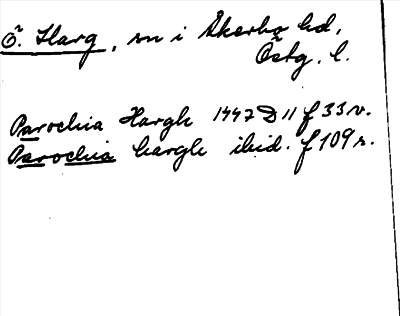 Ö. Harg, sn i Åkerbo hd,
Östg. l.
Parochia Hargh 1447 D 11 f 33 v.
Parochia hargh ibid. f 109 r.